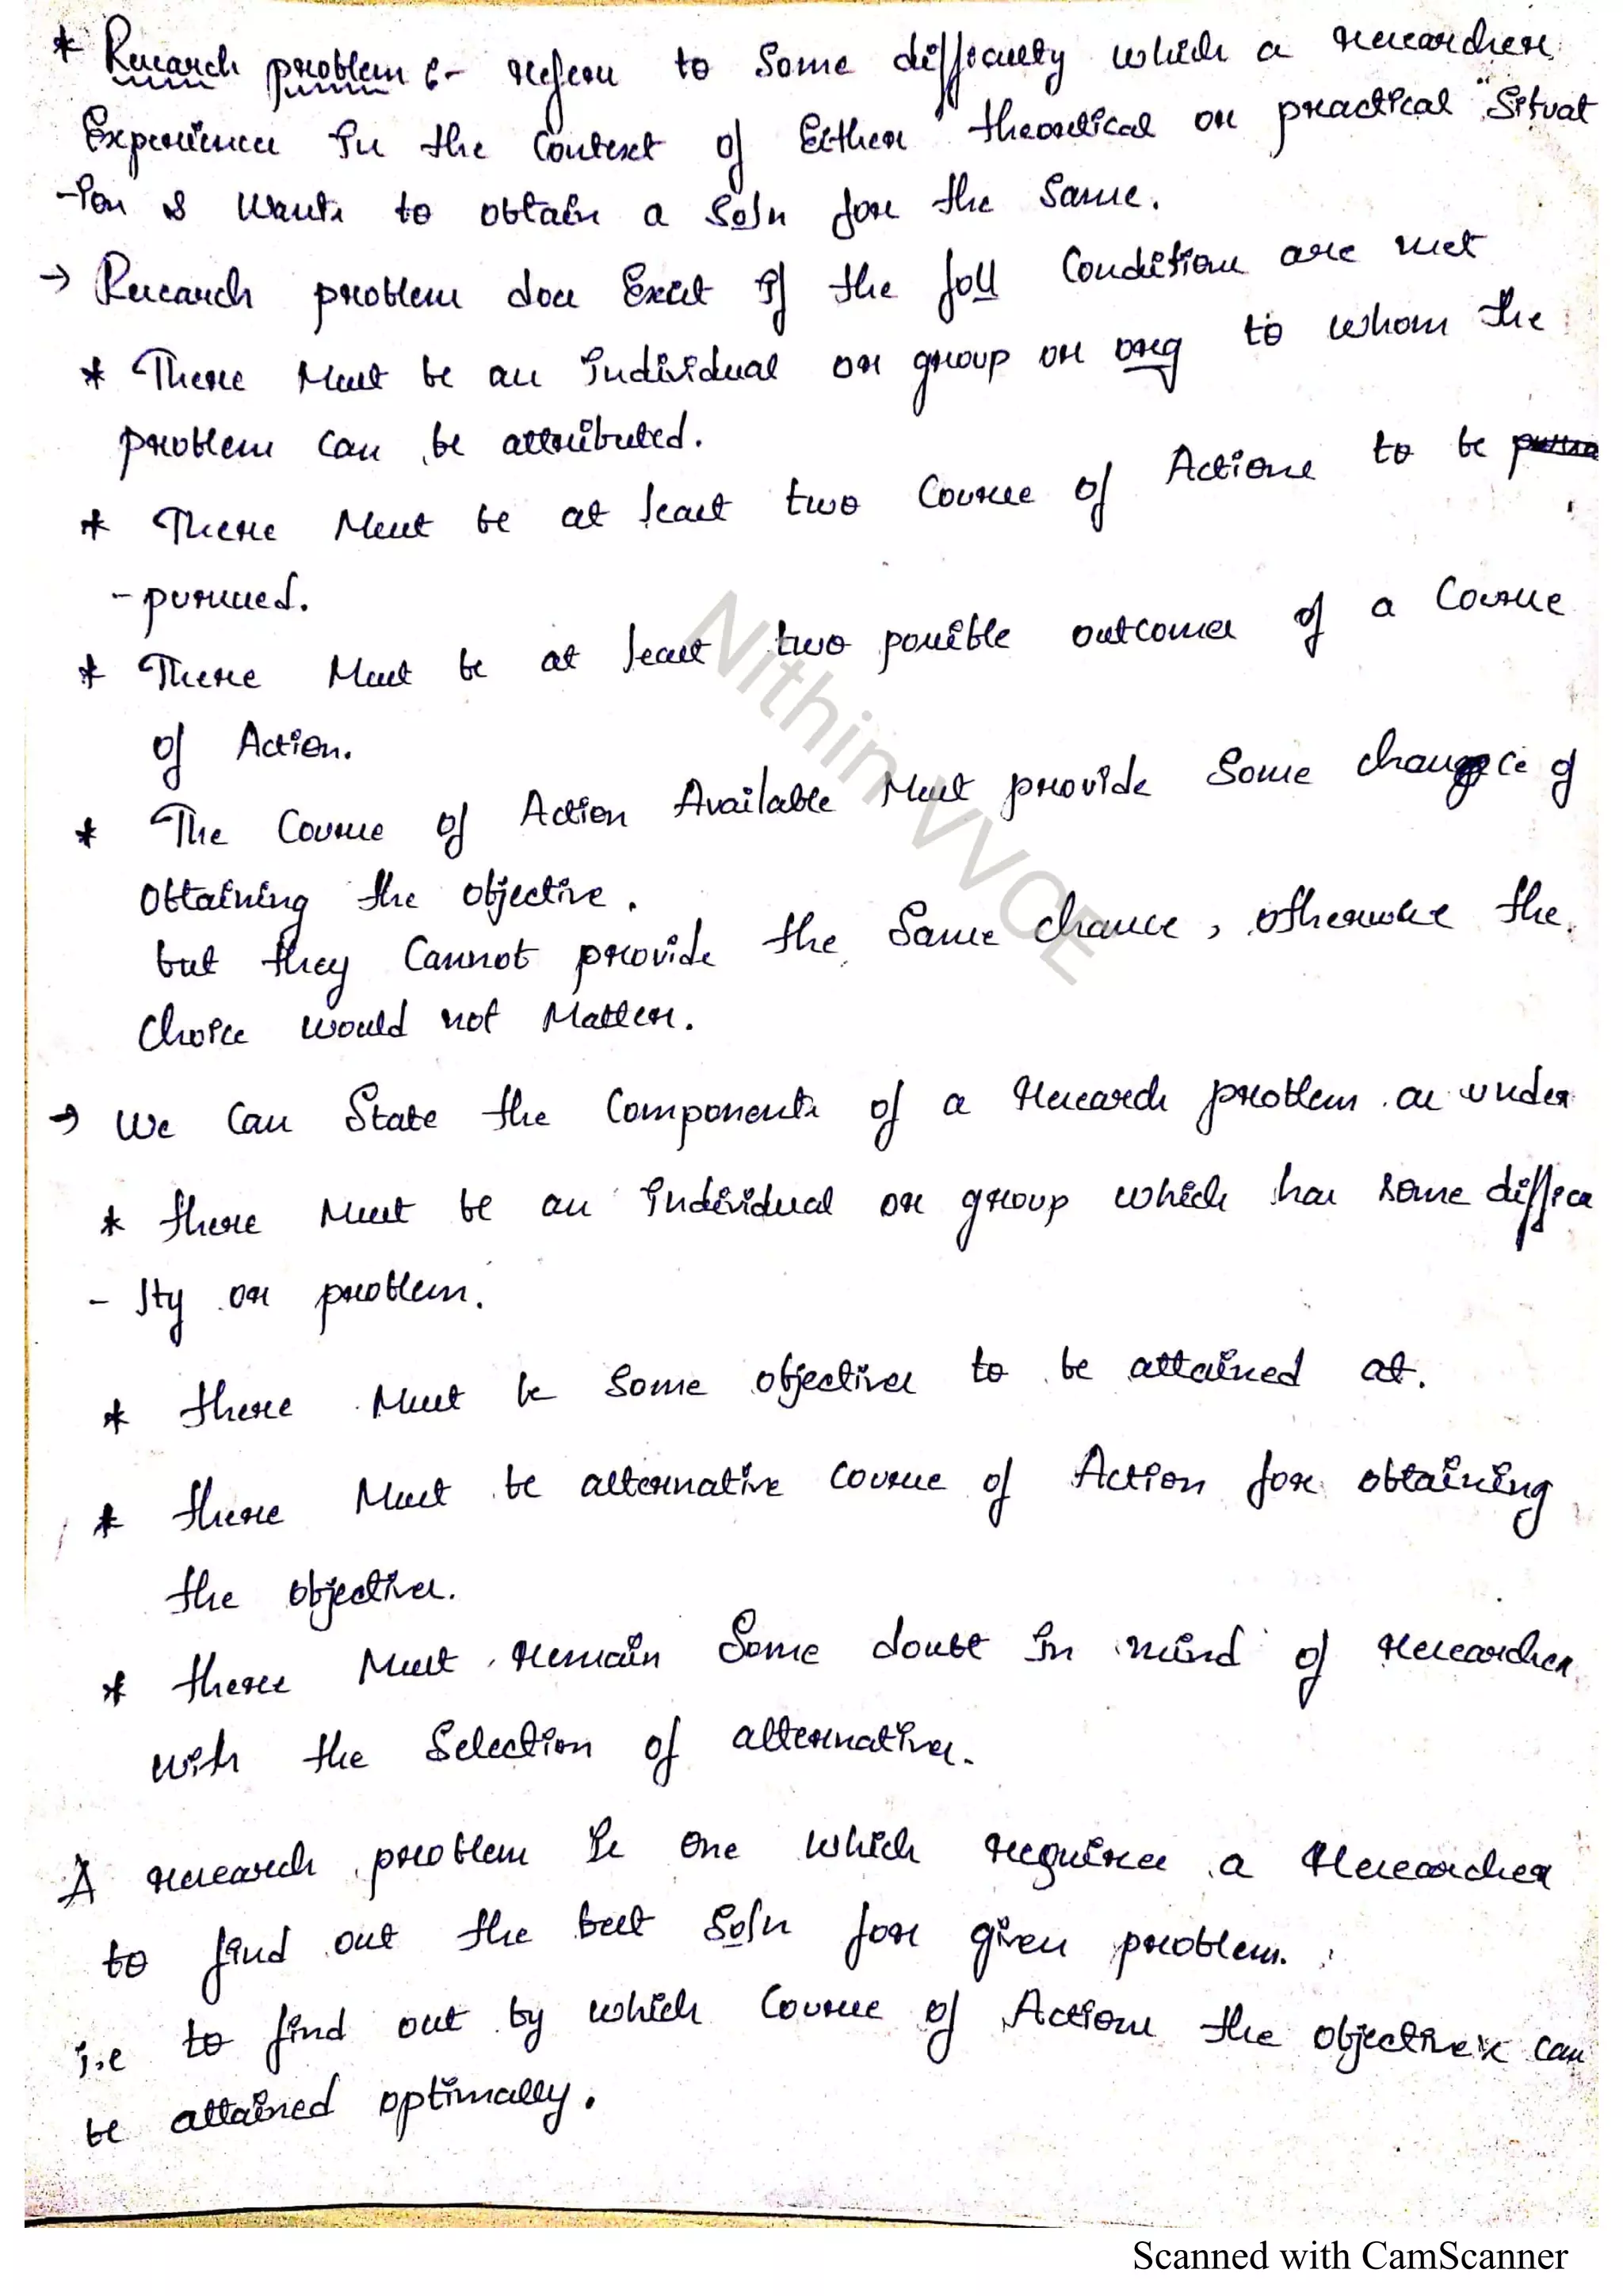 * Research problem :- refers to some difficulty which a researcher
Experience in the context of Either theoretical or practical Situat
-ion & wants to obtain a soln for the same.
→ Research problem does Exist if the foll conditions are met
* There Must be an individual or group or org to whom the
problem can be attributed.
* There Must be at least two Course of Actions to be
-pursued.
* There Must be at least two possible outcomes of a Course
of Action.
* The Course of Action Available Must provide Some chance of
obtaining the objective.
but they Cannot provide the Same chance, otherwise the
Choice would not Matter.
→ We Can State the Components of a research problem as under
* there Must be an individual or group which has some difficu
- lty or problem.
* there Must be Some objectives to be attained at.
* there Must be alternative course of Action for obtaining
the objectives.
* there Must remain Some doubt in mind of researcher
with the Selection of alternatives.
A research problem is one which requires a researcher
to find out the best soln for given problem.
i.e to find out by which Course of Actions the objectives can
be attained optimally.
Nithin VVCE
Scanned with CamScanner